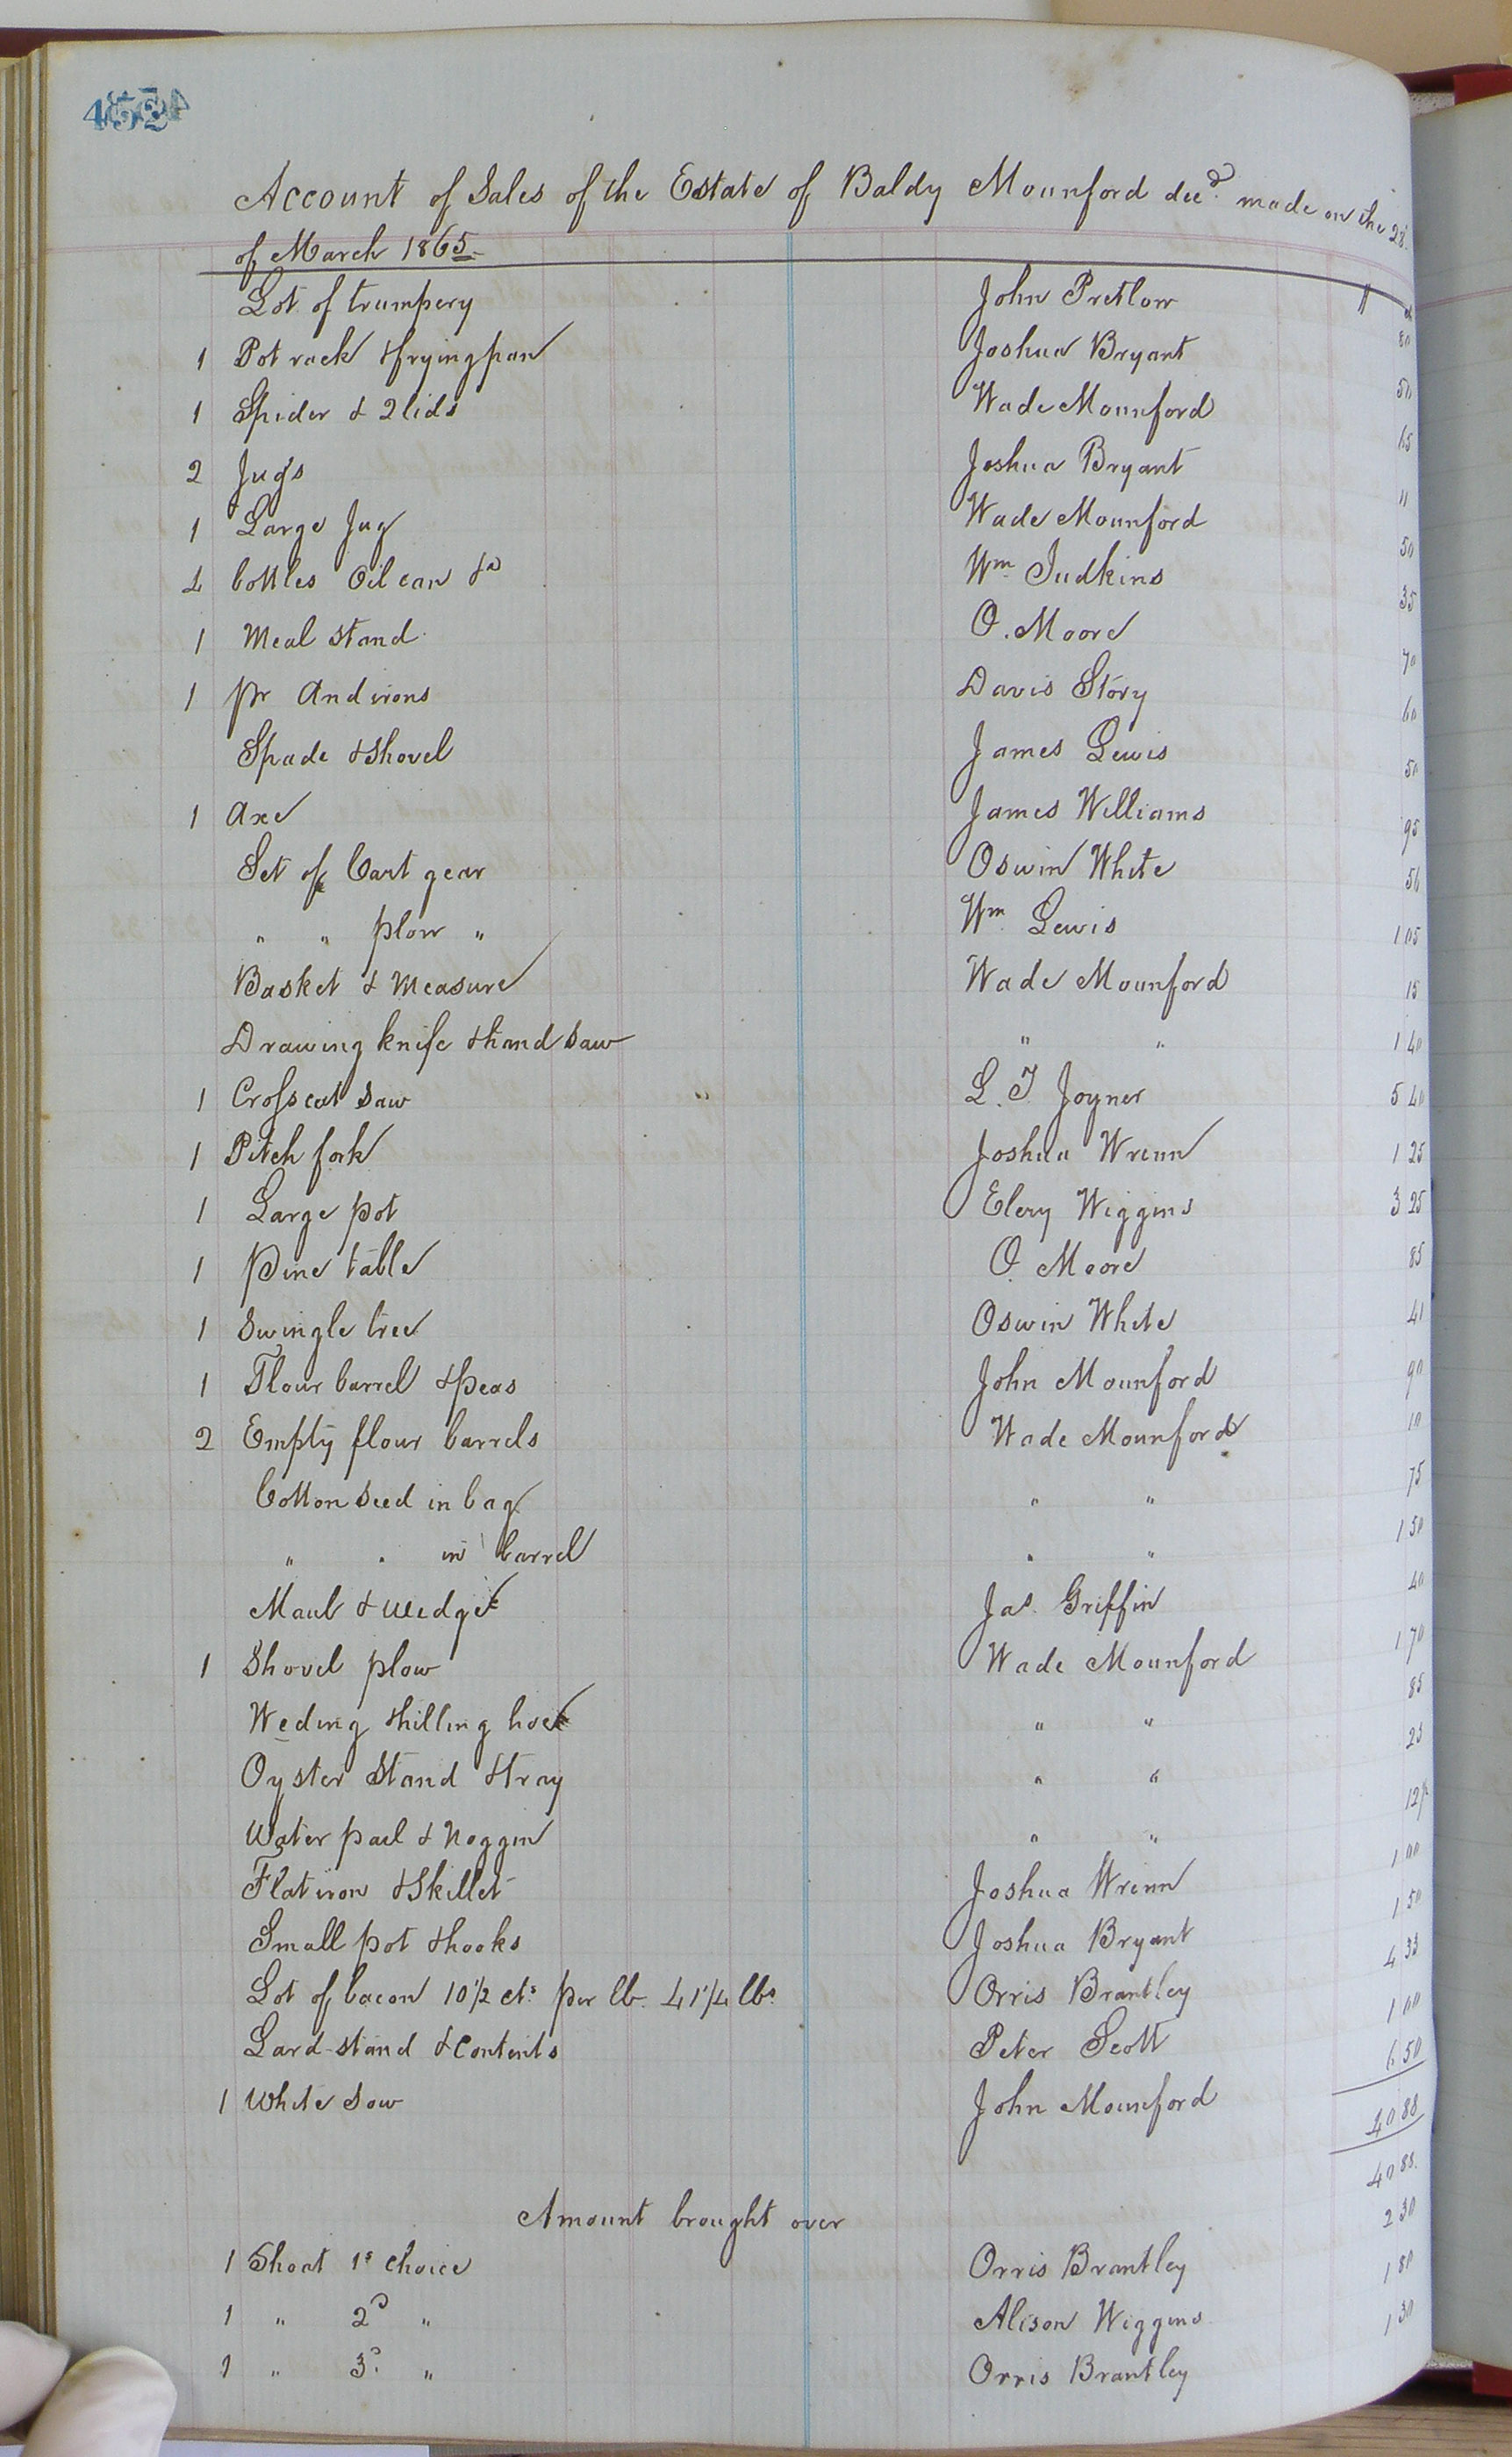 Account of Sales of the Estate of Baldy Mounford decd. made on the 28.
of March 1865.
Lot of trumpery John Pretlow 80
1 Pot rack & fryingpan Joshua Bryant 50
1 Spider & 2 lids Wade Mounford 65
2 Jugs Joshua Bryant 11
1 Large Jug Wade Mounford 50
4 bottles Oil can &c Wm Judkins 35
1 Meal stand O. Moore 70
1 pr Andirons Davis Story 60
Spade & Shovel James Lewis 50
1 Axe James Williams 95
Set of Cart gear Oswin White 56
" " plow " Wm Lewis 1 05
Basket & Measure Wade Mounford 15
Drawing knife & hand saw " " 1 40
1 Crosscut Saw L. T. Joyner 5 40
1 Pitch fork Joshua Wrenn 1 25
1 Large pot Elery Wiggins 3 25
1 Pine table O. Moore 85
1 Swingle tree Oswin White 41
1 Flour barrel & peas John Mounford 90
2 Empty flour barrels Wade Mounford 10
Cotton Seed in bag " " 75
" " in barrel " " 1 50
Maul & Wedge Jas. Griffin 40
1 Shovel plow Wade Mounford 1 70
Weding & hilling hoe " " 85
Oyster Stand & tray " " 25
Water pail & Noggin " " 12½
Flat iron & Skillet Joshua Wrenn 1 00
Small pot & hooks Joshua Bryant 1 50
Lot of bacon 10½ cts per lb. 41¼ lbs Orris Brantley 4 33
Lard-stand & Contents Peter Scott 1 00
1 White Sow John Mounford 6 50
40 88
40 88.
Amount brought over
1 Shoat 1s choice Orris Brantley 2 30
1 " 2d " Alison Wiggins 1 80
1 " 3d " Orris Brantley 1 30